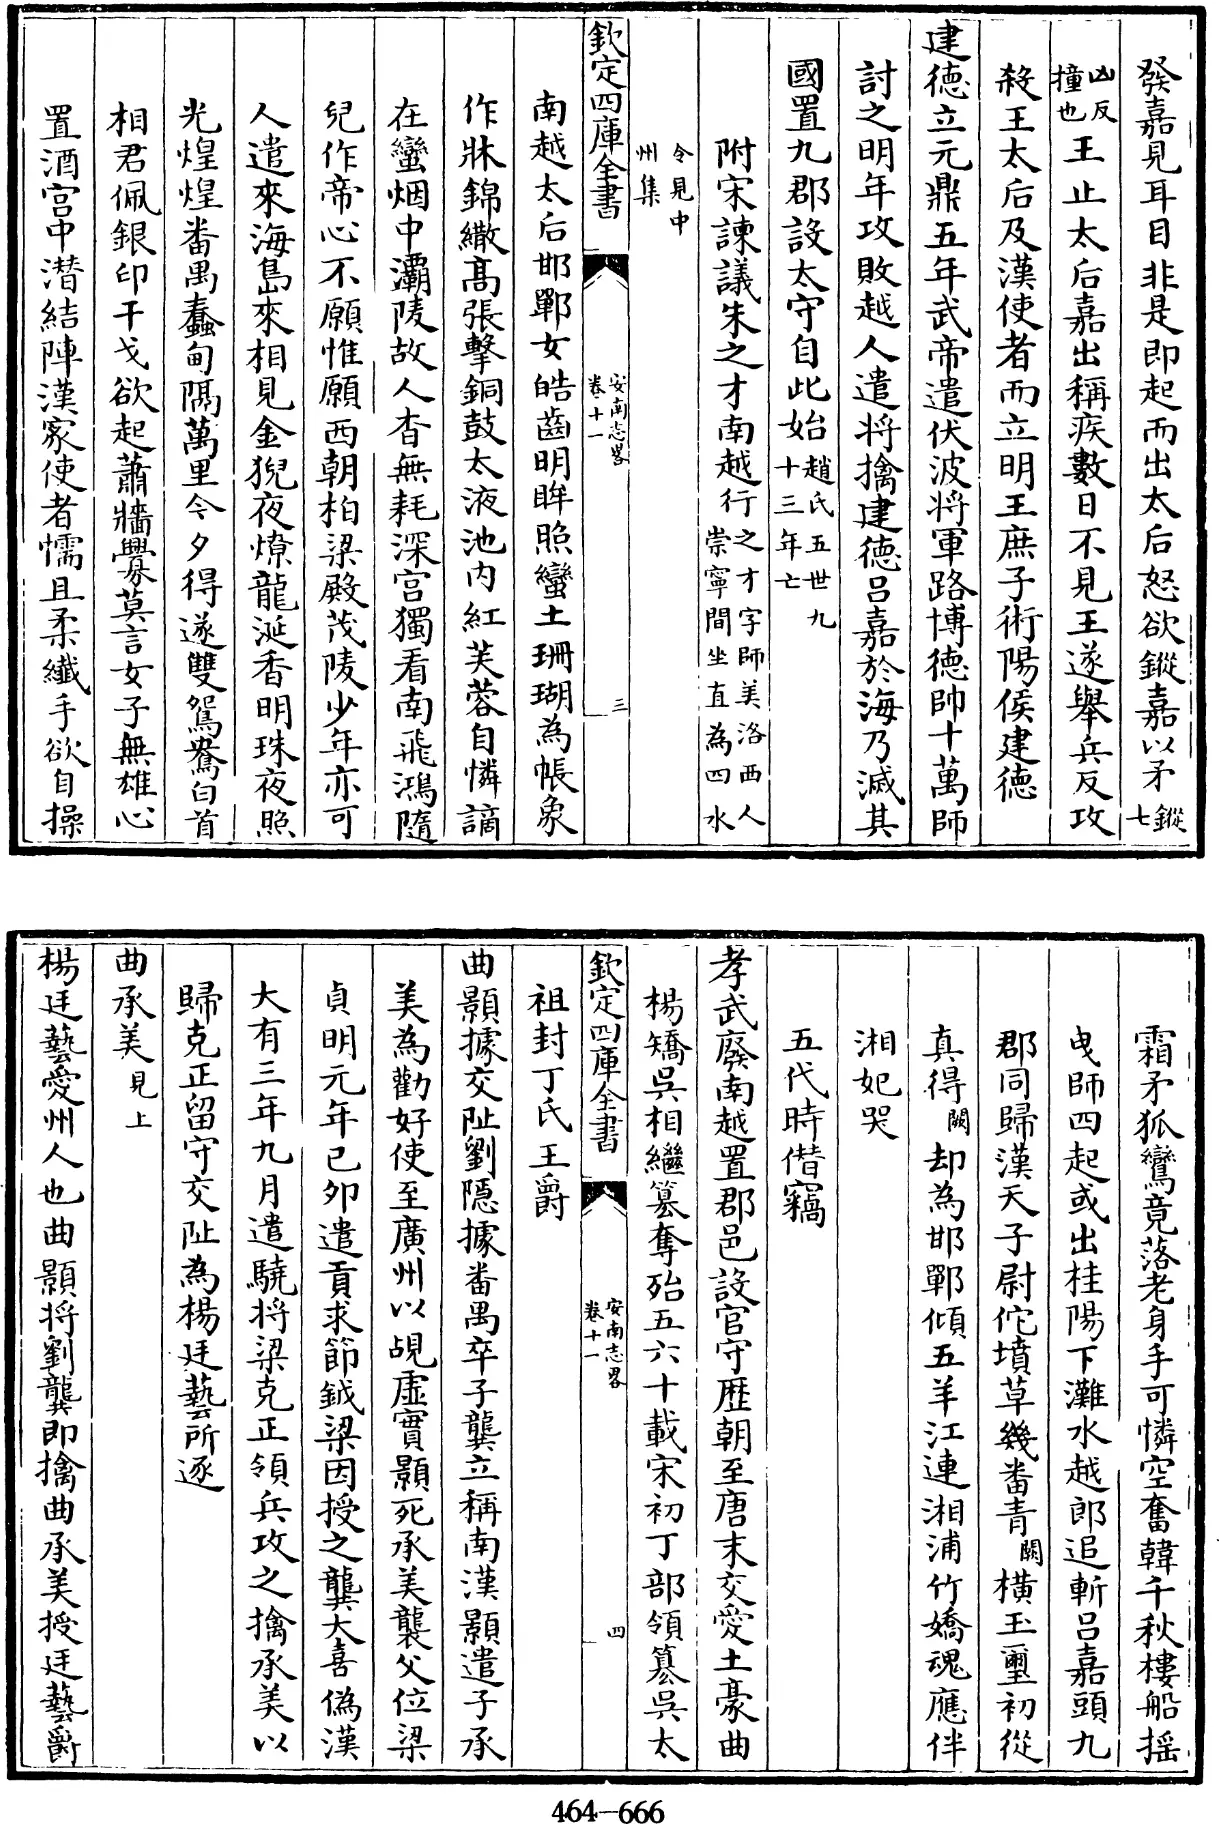 發嘉見耳目非是即起而出太后怒欲鏦嘉以矛鏦七
凶反撞也王止太后嘉出稱疾數日不見王遂舉兵反攻
殺王太后及漢使者而立明王庶子術陽侯建德
建德立元鼎五年武帝遣伏波将軍路博德帥十萬師
討之明年攻敗越人遣将擒建德吕嘉於海乃滅其
國置九郡設太守自此始趙氏五世九十三年亡
附宋諫議朱之才南越行之才字師美洛西人崇寧間坐直為四水
令見中州集
欽定四庫全書
安南志畧卷十一
三
南越太后邯鄲女皓齒明眸照蠻土珊瑚為帳象
作牀錦繖高張擊銅鼓太液池内紅芙蓉自憐謫
在蠻烟中灞陵故人杳無耗深宫獨看南飛鴻隨
兒作帝心不願惟願西朝柏梁殿茂陵少年亦可
人遣來海島來相見金猊夜燎龍涎香明珠夜照
光煌煌番禺蠢甸隅萬里今夕得遂雙鴛鴦白首
相君佩銀印干戈欲起蕭牆釁莫言女子無雄心
置酒宫中潜結陣漢家使者懦且柔纖手欲自操
霜矛狐鸞竟落老身手可憐空奮韓千秋樓船摇
曳師四起或出桂陽下灘水越郎追斬吕嘉頭九
郡同歸漢天子尉佗墳草幾番青闕横玉璽初從
真得闕却為邯鄲傾五羊江連湘浦竹嬌魂應伴
湘妃哭
五代時僣竊
孝武廢南越置郡邑設官守歴朝至唐末交愛土豪曲
楊矯吳相繼簒奪殆五六十載宋初丁部領簒吳太
欽定四庫全書
安南志畧卷十一
四
祖封丁氏王爵
曲顥據交阯劉隱據番禺卒子龑立稱南漢顥遣子承
美為勸好使至廣州以覘虚實顥死承美襲父位梁
貞明元年己卯遣貢求節鉞梁因授之龑大喜偽漢
大有三年九月遣驍将梁克正領兵攻之擒承美以
歸克正留守交阯為楊廷藝所逐
曲承美見上
楊廷藝愛州人也曲顥将劉龑即擒曲承美授廷藝爵
464-666